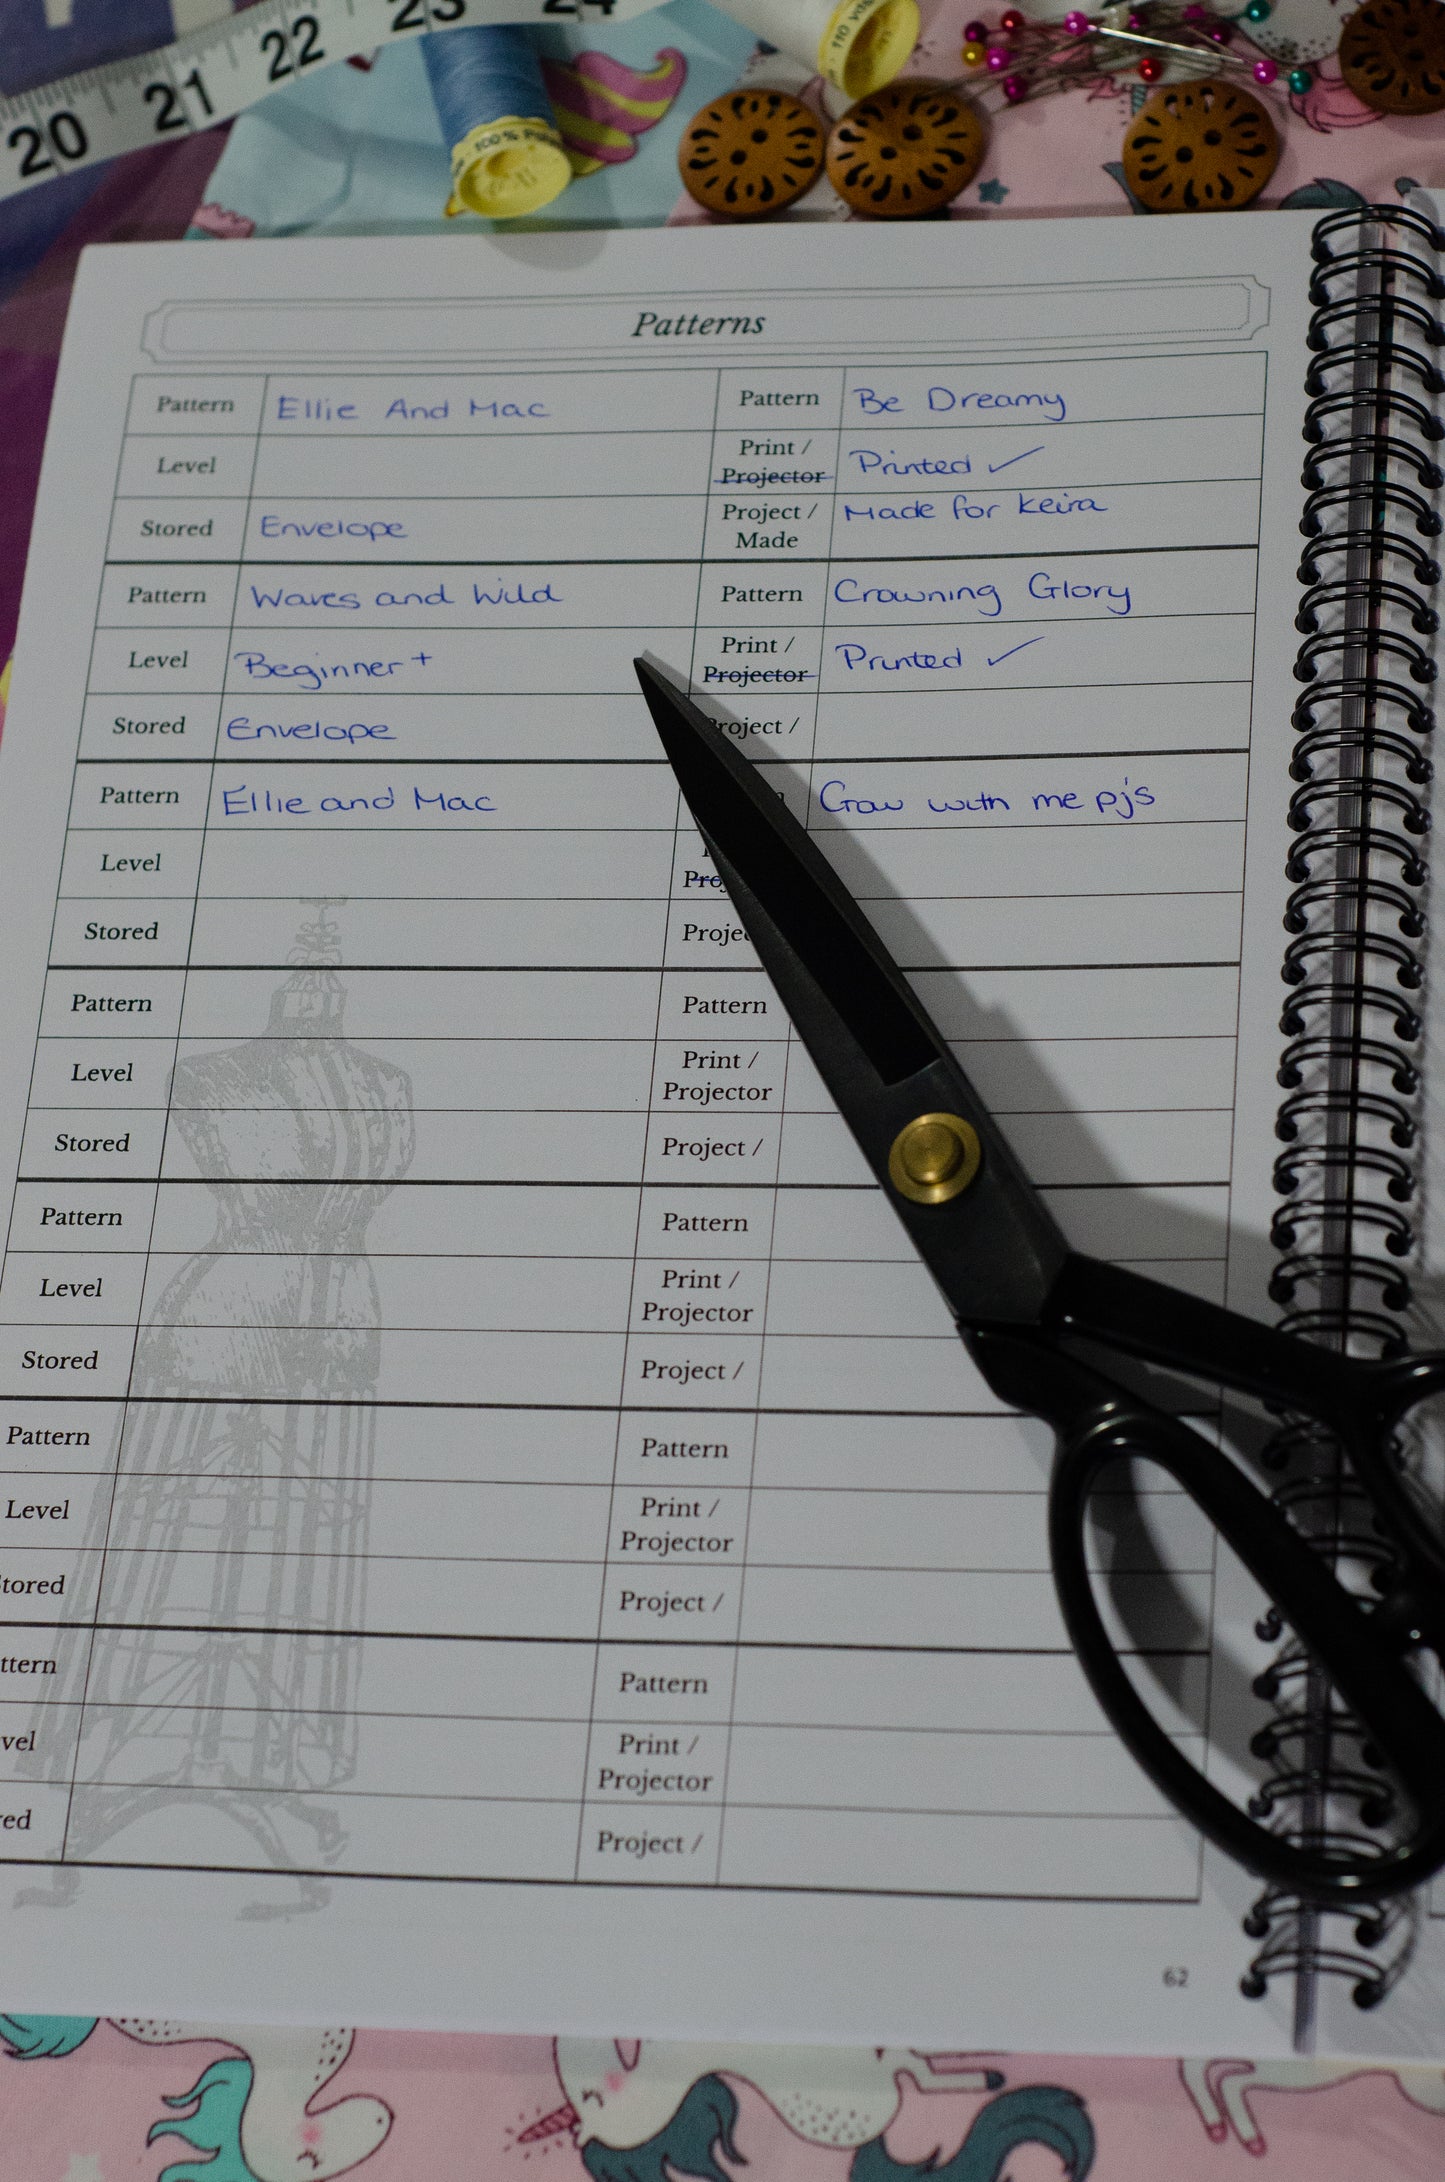 20 21 22 23 24
100%
110
Patterns
Pattern Ellie And Mac Pattern Be Dreamy
Level Print / Projector Printed ✓
Stored Envelope Project / Made Made for Keira
Pattern Waves and Wild Pattern Crowning Glory
Level Beginner + Print / Projector Printed ✓
Stored Envelope Project /
Pattern Ellie and Mac Grow with me pj's
Level
Stored
Pattern Pattern
Level Print / Projector
Stored Project /
Pattern Pattern
Level Print / Projector
Stored Project /
Pattern Pattern
Level Print / Projector
tored Project /
ttern Pattern
vel Print / Projector
ed Project /
62